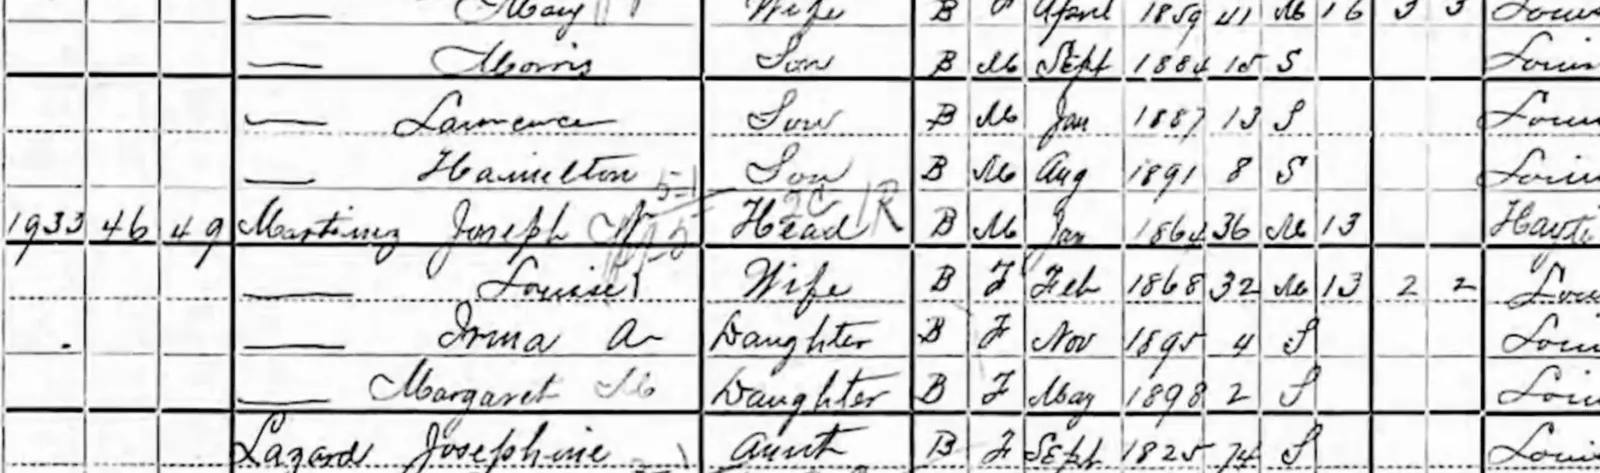 Mary Wife B F April 1859 41 M 16 3 3 Louis
Morris Son B M Sept 1884 15 S Louis
Lawrence Son B M Jan 1887 13 S Louis
Hamilton Son B M Aug 1891 8 S Louis
1933 46 49 Martinez Joseph Head B M Jan 1864 36 M 13 Hayti
Louise Wife B F Feb 1868 32 M 13 2 2 Loui
Irma A Daughter B F Nov 1895 4 S Loui
Margaret M Daughter B F May 1898 2 S Loui
Lazard Josephine Aunt B F Sept 1825 74 S Loui